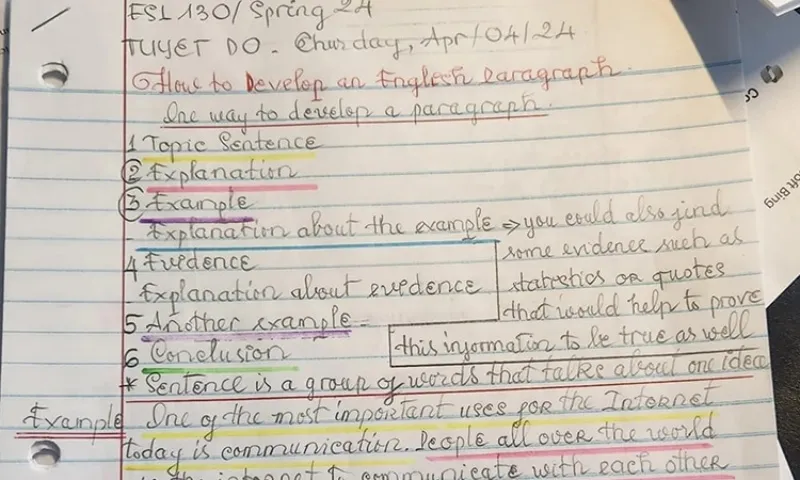 ESL 130/Spring 24
TUYET DO. Churday, Apr/04/24
How to Develop an English Paragraph.
One way to develop a paragraph.
1 Topic Sentence
2 Explanation
3 Example
- Explanation about the example => you could also find
some evidence such as
4 Evedence
statretics or quotes
- Explanation about evedence
that would help to prove
5 Another example -
this information to be true as well
6 Conclusion
* Sentence is a group of words that talke about one idea
Example One of the most important uses for the Internet
today is communication. People all over the world
the internet to communicate with each other
soft Bing